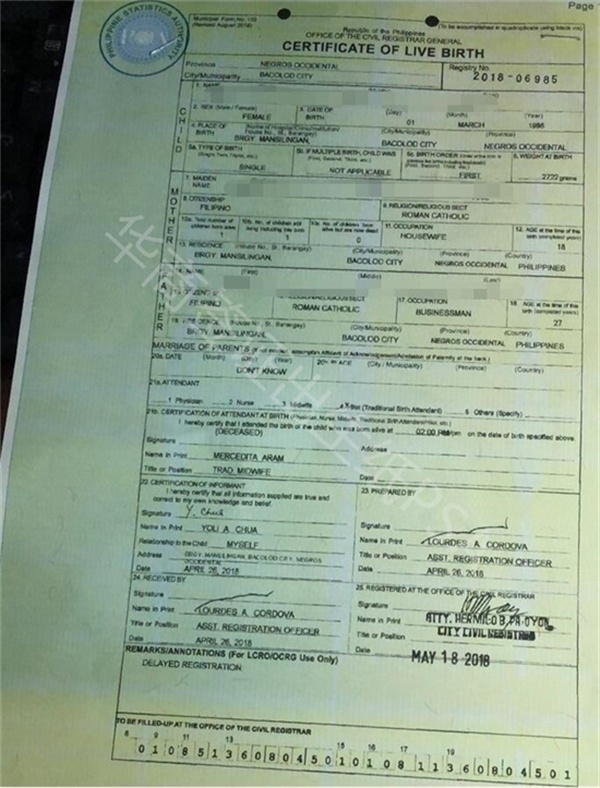 Page 1
PHILIPPINE STATISTICS AUTHORITY
Municipal Form No. 102
(Revised August 2016)
(To be accomplished in quadruplicate using black ink)
Republic of the Philippines
OFFICE OF THE CIVIL REGISTRAR GENERAL
CERTIFICATE OF LIVE BIRTH
Province NEGROS OCCIDENTAL
Registry No.
City/Municipality BACOLOD CITY
2018-06985
CHILD
1. NAME
2. SEX (Male / Female) FEMALE
3. DATE OF BIRTH (Day) 01 (Month) MARCH (Year)
4. PLACE OF BIRTH (Name of Hospital/Clinic/Institution/ House No., St., Barangay) BRGY. MANSILINGAN, (City/Municipality) BACOLOD CITY (Province) NEGROS OCCIDENTAL
5a. TYPE OF BIRTH (Single, Twin, Triplet, etc.) SINGLE
5b. IF MULTIPLE BIRTH, CHILD WAS (First, Second, Third, etc.) NOT APPLICABLE
5c. BIRTH ORDER FIRST
6. WEIGHT AT BIRTH 2722 grams
MOTHER
7. MAIDEN NAME
8. CITIZENSHIP FILIPINO
9. RELIGION/RELIGIOUS SECT ROMAN CATHOLIC
10a. Total number of children born alive 1
10b. No. of children still living including this birth 1
10c. No. of children born alive but are now dead 0
11. OCCUPATION HOUSEWIFE
12. AGE at the time of this birth (completed years) 18
13. RESIDENCE (House No., St., Barangay) BRGY. MANSILINGAN, (City/Municipality) BACOLOD CITY (Province) NEGROS OCCIDENTAL (Country) PHILIPPINES
FATHER
14. NAME (First) (Middle) (Last)
15. CITIZENSHIP FILIPINO
RELIGION/RELIGIOUS SECT ROMAN CATHOLIC
17. OCCUPATION BUSINESSMAN
18. AGE at the time of this birth (completed years) 27
19. RESIDENCE (House No., St., Barangay) BRGY. MANSILINGAN, (City/Municipality) BACOLOD CITY (Province) NEGROS OCCIDENTAL (Country) PHILIPPINES
MARRIAGE OF PARENTS (If not married, accomplish Affidavit of Acknowledgement/Admission of Paternity at the back.)
20a. DATE (Month) (Day) (Year) DON'T KNOW
20b. PLACE (City / Municipality) (Province) (Country)
21a. ATTENDANT
1 Physician 2 Nurse 3 Midwife 4 X Hilot (Traditional Birth Attendant) 5 Others (Specify)
21b. CERTIFICATION OF ATTENDANT AT BIRTH (Physician, Nurse, Midwife, Traditional Birth Attendant/Hilot, etc.)
I hereby certify that I attended the birth of the child who was born alive at 02:00 PM am/pm on the date of birth specified above.
(DECEASED)
Signature
Address
Name in Print MERCEDITA ARAM
Title or Position TRAD. MIDWIFE
Date
22. CERTIFICATION OF INFORMANT
I hereby certify that all information supplied are true and correct to my own knowledge and belief.
Signature Y. Chua
Name in Print YOLI A. CHUA
Relationship to the Child MYSELF
Address BRGY. MANSILINGAN, BACOLOD CITY, NEGROS OCCIDENTAL
Date APRIL 26, 2018
23. PREPARED BY
Signature
Name in Print LOURDES A. CORDOVA
Title or Position ASST. REGISTRATION OFFICER
Date APRIL 26, 2018
24. RECEIVED BY
Signature
Name in Print LOURDES A. CORDOVA
Title or Position ASST. REGISTRATION OFFICER
Date APRIL 26, 2018
25. REGISTERED AT THE OFFICE OF THE CIVIL REGISTRAR
Signature
Name in Print ATTY. HERMILO B. PA-OYON
Title or Position CITY CIVIL REGISTRAR
Date MAY 18 2018
REMARKS/ANNOTATIONS (For LCRO/OCRG Use Only)
DELAYED REGISTRATION
TO BE FILLED-UP AT THE OFFICE OF THE CIVIL REGISTRAR
8 9 11 13 15 16 19